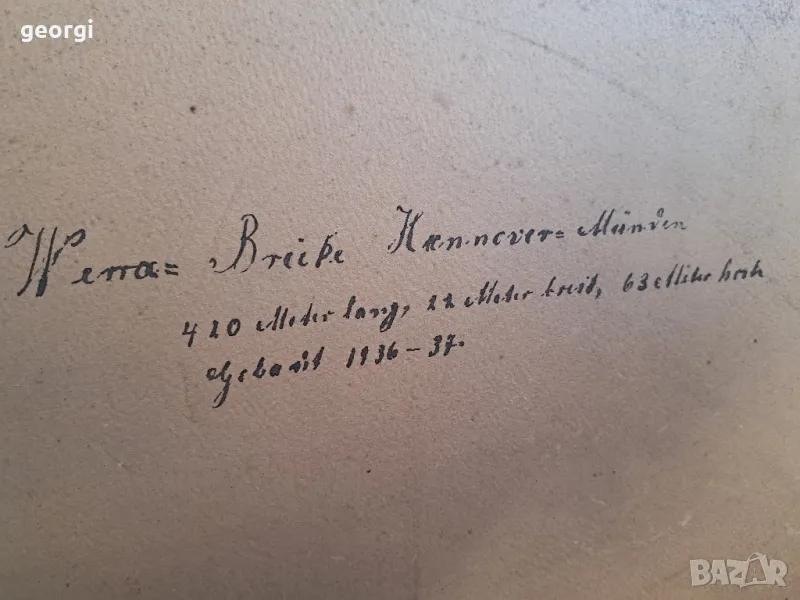 georgi
Werra= Brücke Hannover= Münden
420 Meter lang, 22 Meter breit, 63 Meter hoch
Gebaut 1936-37.
BAZAR